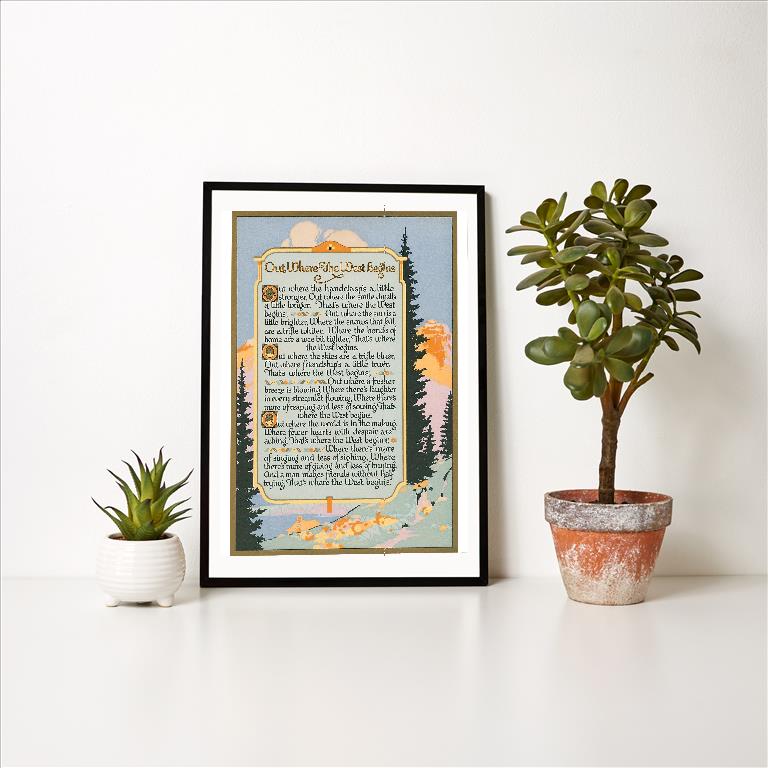 Out Where The West Begins
Out where the handclasp's a little
stronger, Out where the smile dwells
a little longer, That's where the West
begins; Out where the sun is a
little brighter, Where the snows that fall
are a trifle whiter, Where the bonds of
home are a wee bit tighter, That's where
the West begins.
Out where the skies are a trifle bluer,
Out where friendship's a little truer,
That's where the West begins;
Out where a fresher
breeze is blowing, Where there's laughter
in every streamlet flowing, Where there's
more of reaping and less of sowing, That's
where the West begins.
Out where the world is in the making,
Where fewer hearts with despair are
aching, That's where the West begins;
Where there's more
of singing and less of sighing, Where
there's more of giving and less of buying,
And a man makes friends without half
trying, That's where the West begins.